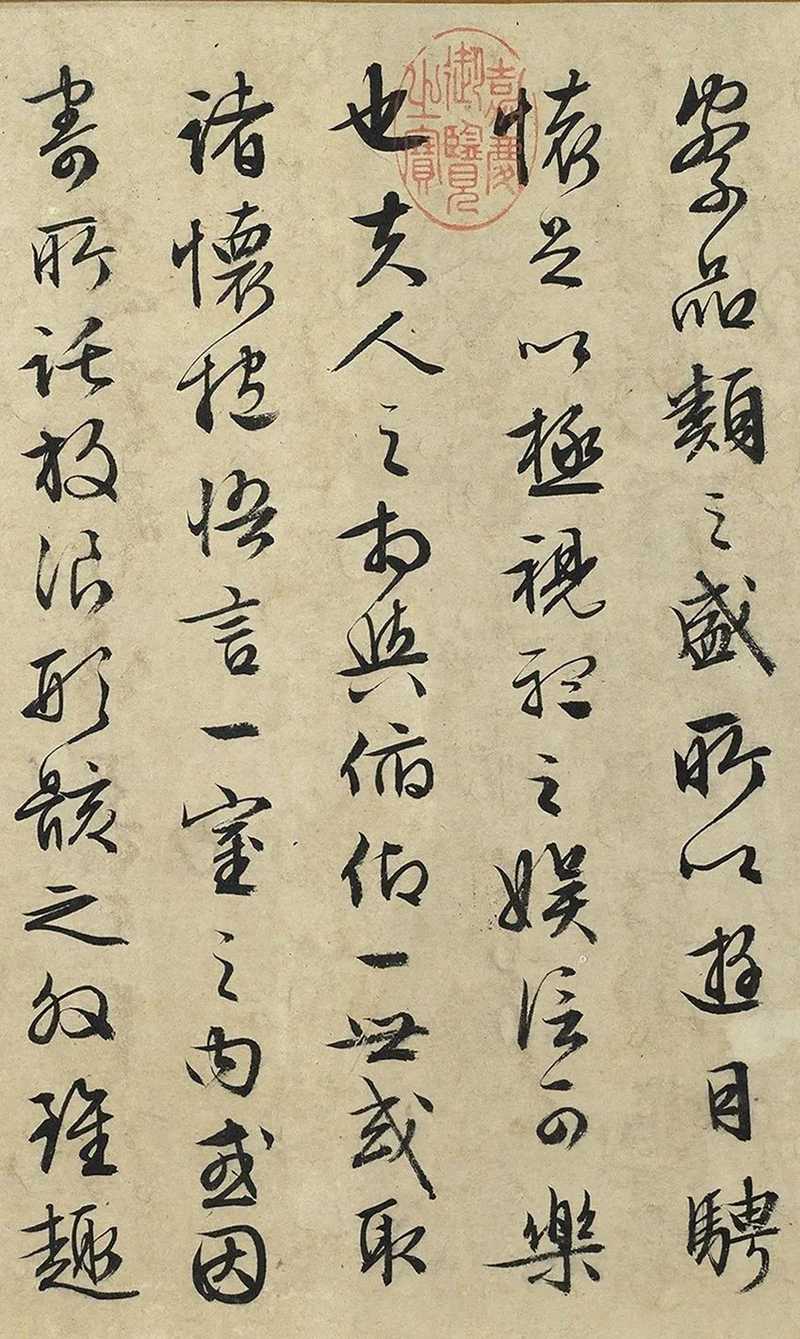 察品類之盛所以遊目騁
懷足以極視聽之娛信可樂
也夫人之相與俯仰一世或取
諸懷抱悟言一室之內或因
寄所託放浪形骸之外雖趣
嘉慶
御覽
之寶